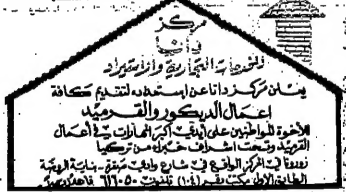 مركز
دانا
للخدمات التجارية والاستيراد
يعلن مركز دانا عن استعداده لتقديم كافة
اعمال الديكور والقرميد
للأخوة المواطنين على أيدي أكبر الخبرات في أعمال
القرميد وتحت اشراف خبراء من تركيا
زورونا في المركز الواقع في شارع وادي صقرة - بناية الروضة
الطابق الأول مكتب رقم (١٠٤) تلفون